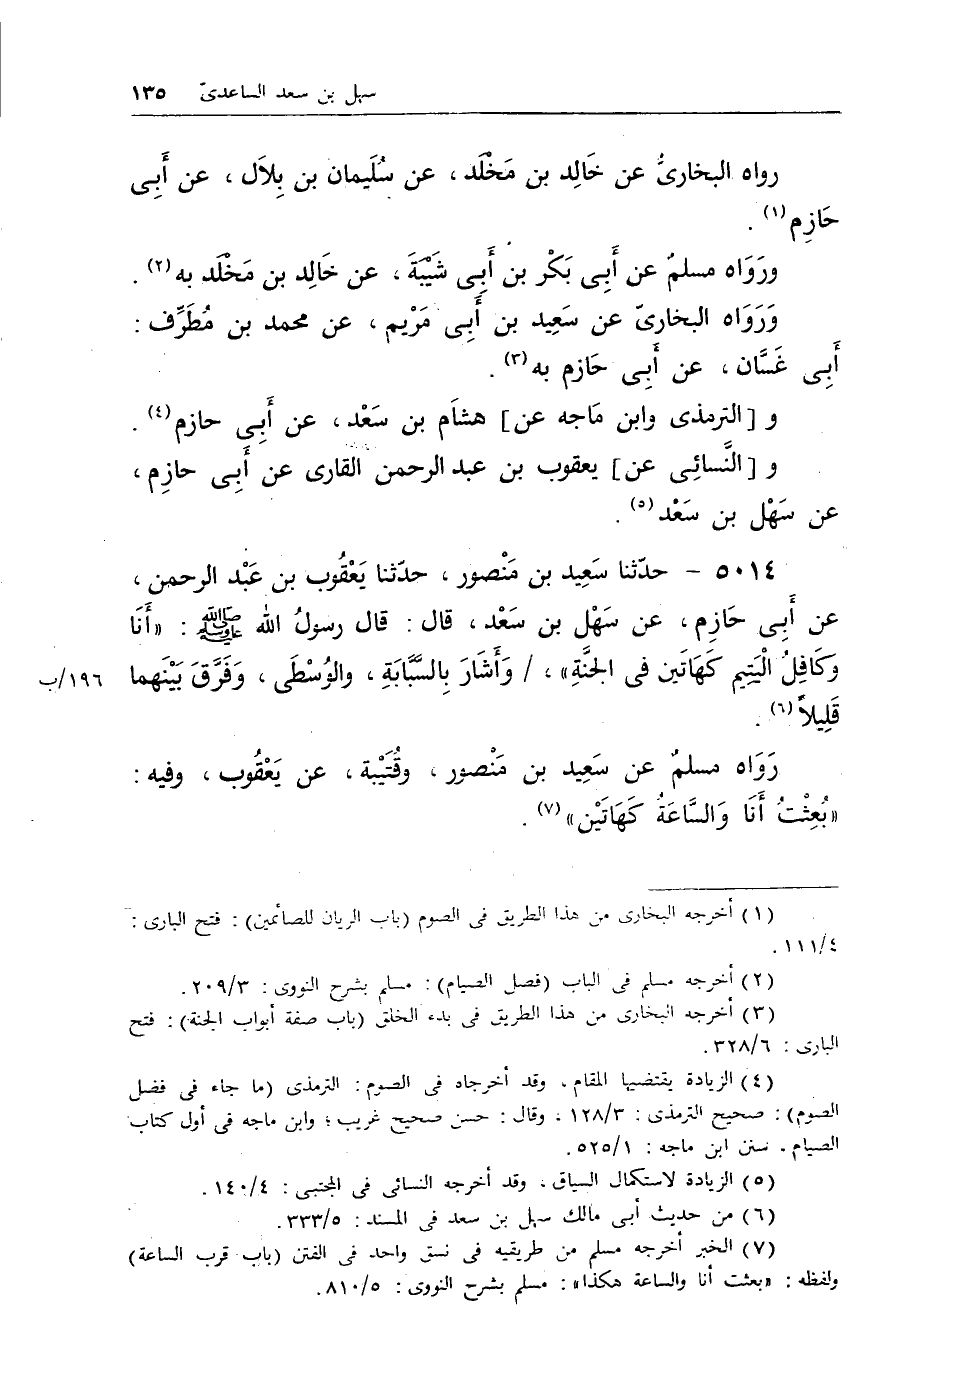 سهل بن سعد الساعدىّ ١٣٥
رواه البخارىُّ عن خَالِد بن مَخْلَد ، عن سُلَيمان بن بِلَال ، عن أَبِى
حَازِم(١) .
ورَوَاه مسلمٌ عن أَبِى بَكْر بن أَبِى شَيْبَةَ ، عن خَالِد بن مَخْلَد به(٢) .
وَرَوَاه البخارىّ عن سَعِيد بن أَبِى مَرْيم ، عن محمد بن مُطَرِّف :
أَبِى غَسَّان ، عن أَبِى حَازم به(٣) .
و [الترمذى وابن مَاجه عن] هشَام بن سَعْد ، عن أَبِى حازم(٤) .
و [النَّسائِى عن] يعقوب بن عبد الرحمن القارى عن أَبِى حازِم ،
عن سَهْل بن سَعْد(٥) .
٥٠١٤ – حدّثنا سَعِيد بن مَنْصور ، حدّثنا يَعْقُوب بن عَبْد الرحمن ،
عن أَبِى حَازِم ، عن سَهْل بن سَعْد ، قال : قال رسولُ الله ﷺ : «أَنَا
وكَافِلُ الْيَتِيم كَهَاتَين فى الجنَّةِ» ، / وَأَشَارَ بِالسَّبَّابَةِ ، والوُسْطَى ، وَفَرَّقَ بَيْنَهما ١٩٦/ب
قَلِيلاً(٦) .
رَوَاه مسلمٌ عن سَعِيد بن مَنْصور ، وقُتَيْبة ، عن يَعْقُوب ، وفيه :
«بُعِثْتُ أَنَا وَالسَّاعَةُ كَهَاتَيْن»(٧) .
(١) أخرجه البخارى من هذا الطريق فى الصوم (باب الريان للصائمين) : فتح البارى :
١١١/٤ .
(٢) أخرجه مسلم فى الباب (فصل الصيام) : مسلم بشرح النووى : ٢٠٩/٣ .
(٣) أخرجه البخارى من هذا الطريق فى بدء الخلق (باب صفة أبواب الجنة) : فتح
البارى : ٣٢٨/٦ .
(٤) الزيادة يقتضيها المقام ، وقد أخرجاه فى الصوم : الترمذى (ما جاء فى فضل
الصوم) : صحيح الترمذى : ١٢٨/٣ ، وقال : حسن صحيح غريب ؛ وابن ماجه فى أول كتاب
الصيام . سنن ابن ماجه : ٥٢٥/١ .
(٥) الزيادة لاستكمال السياق ، وقد أخرجه النسائى فى المجتبى : ١٤٠/٤ .
(٦) من حديث أبى مالك سهل بن سعد فى المسند : ٣٣٣/٥ .
(٧) الخبر أخرجه مسلم من طريقيه فى نسق واحد فى الفتن (باب قرب الساعة)
ولفظه : «بعثت أنا والساعة هكذا» : مسلم بشرح النووى : ٨١٠/٥ .